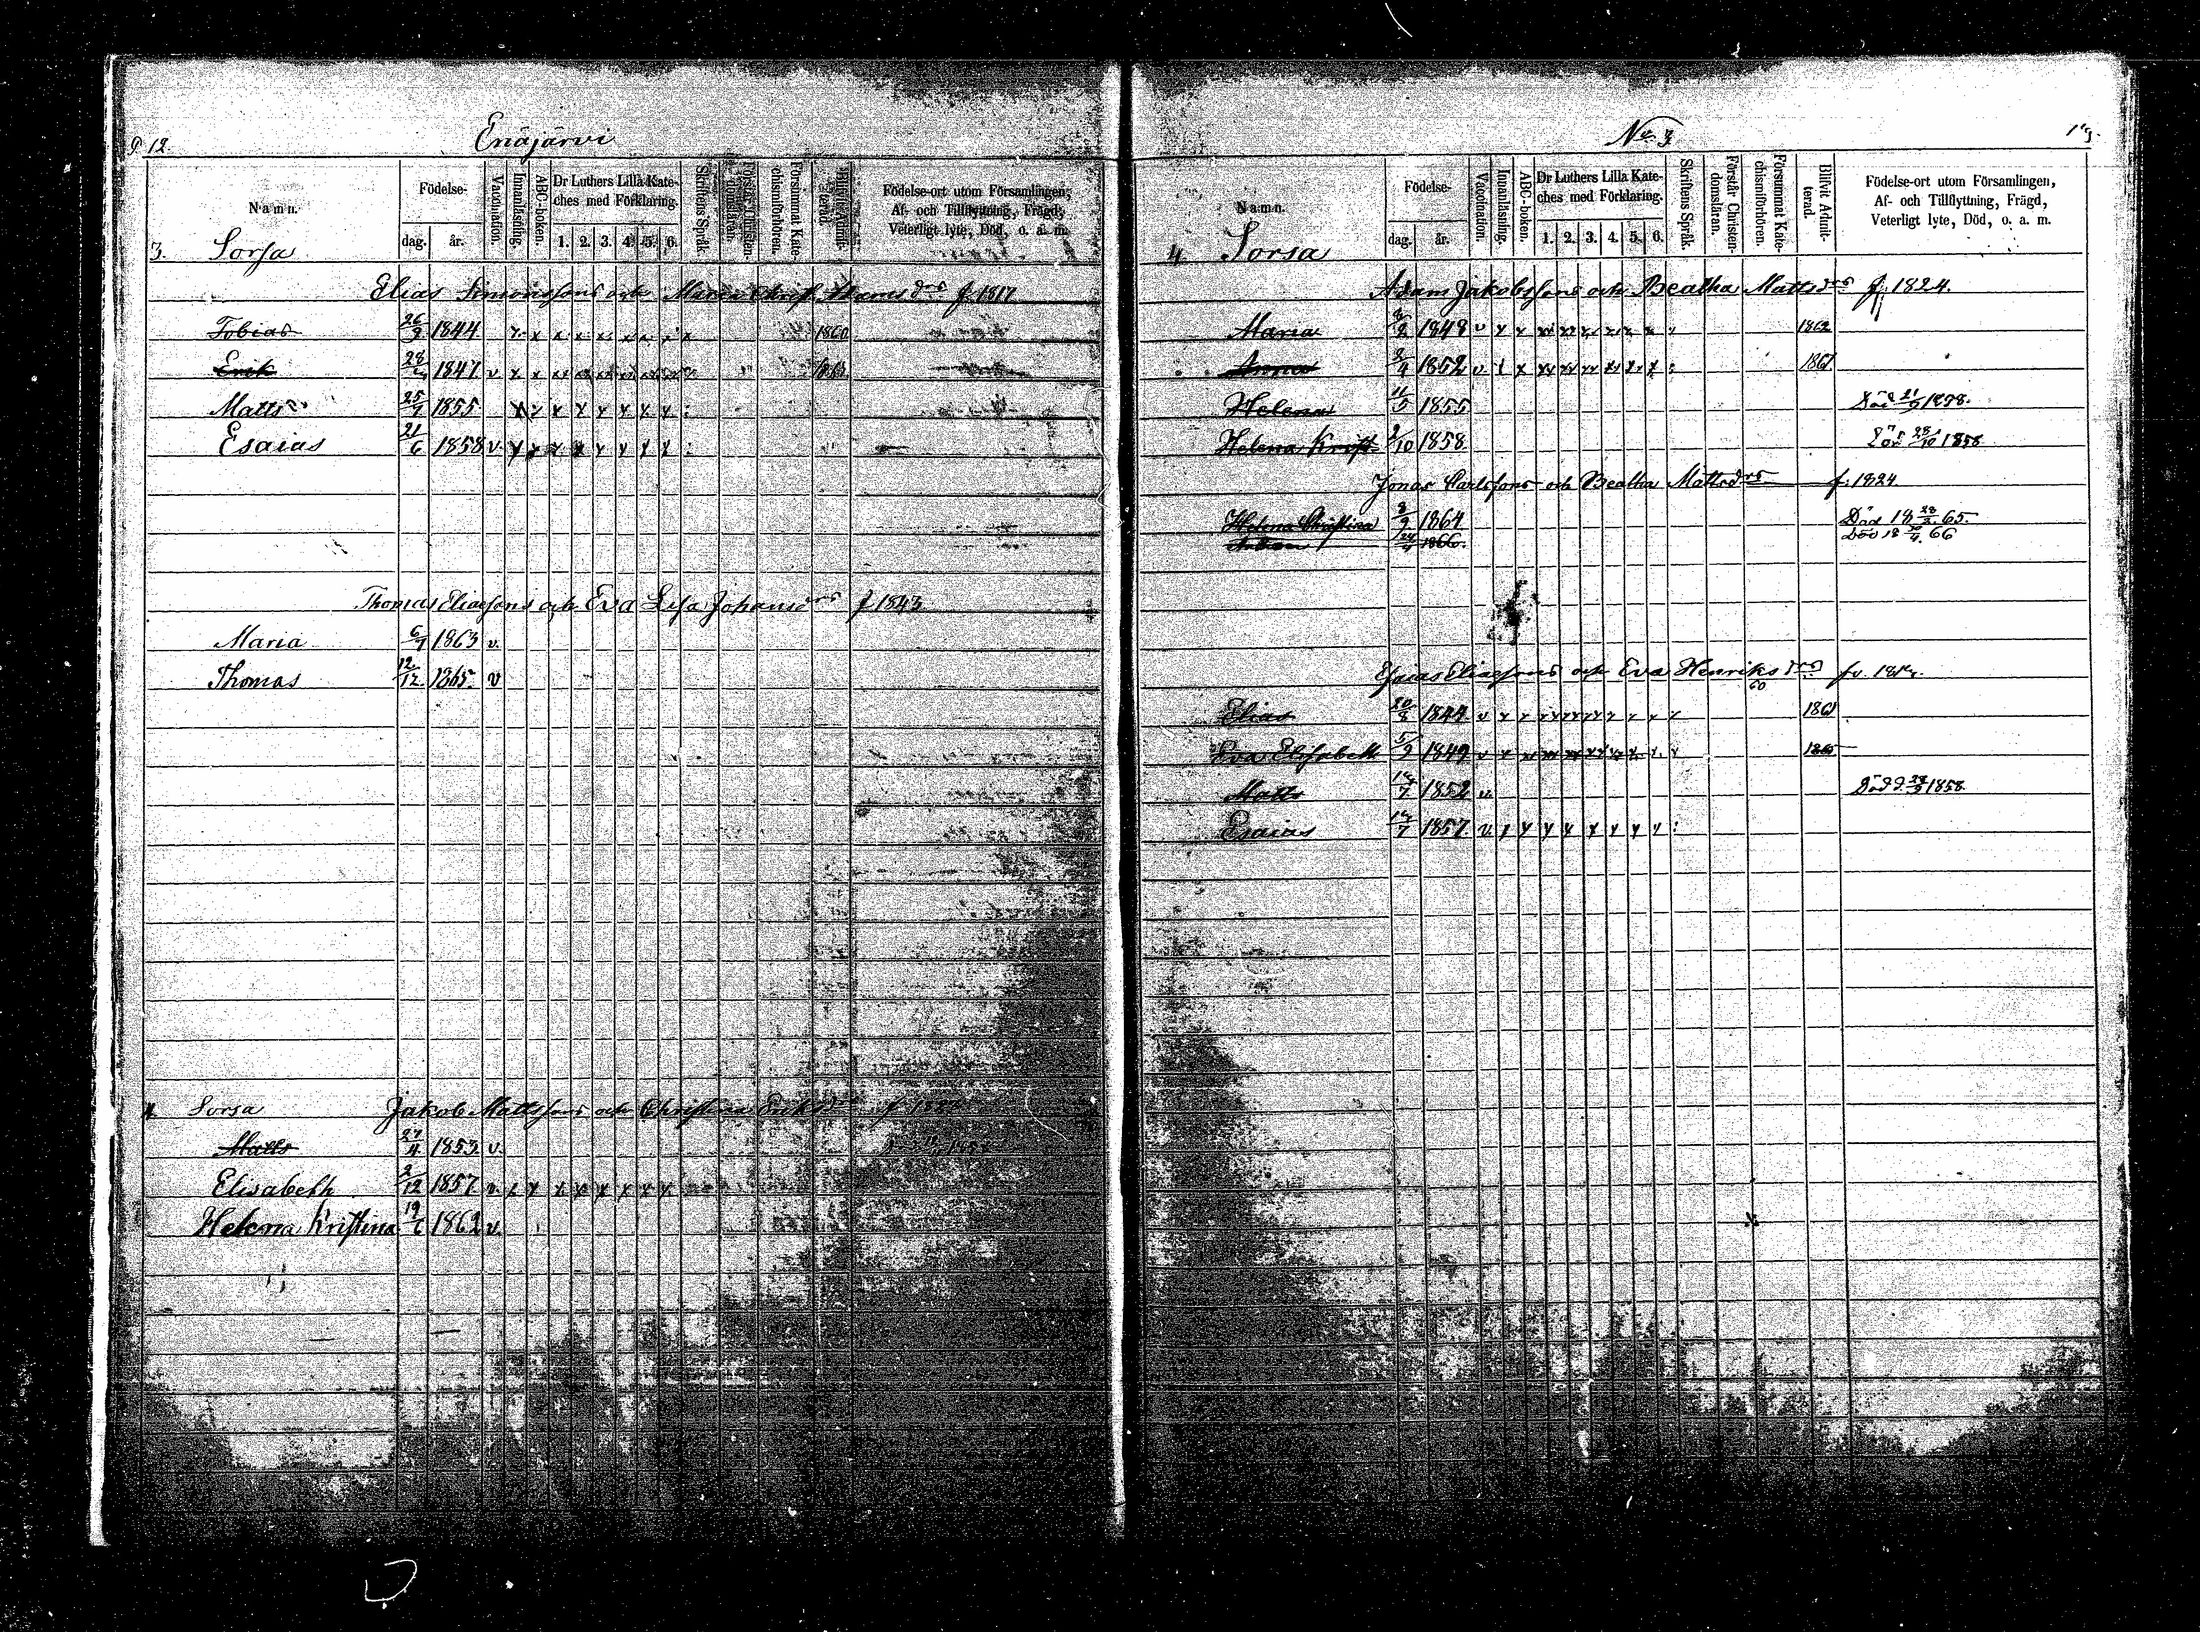 P 12.
Enäjärvi
Namn.
Födelse-
dag. år.
Vaccination.
Innanläsning.
ABC-boken.
Dr Luthers Lilla Kateches med Förklaring.
1. 2. 3. 4. 5. 6.
Skriftens Språk.
Försummat Katechismiförhören.
Födelse-ort utom Församlingen,
Af- och Tillflyttning, Frägd,
Veterligt lyte, Död, o. a. m.
3. Sorsa
Elias Simonssons och Maria Christ. f 1817
Tobias 26/9 1844 x x x x x x x x 1860
Erik 28/ 1847 v x x
Matts 25/7 1855 x x x x x x x x
Esaias 21/6 1858 v. x x x x x x x x
Thomas Eliaesons och Eva Lisa Johansdrs f 1843
Maria 6/7 1863 v.
Thomas 12/12 1865. v
4 Sorsa Jakob Mattssons och Christina Eriksd
Matts 27/4 1853 v.
Elisabeth 2/12 1857 v. x x x x x x x x
Helena Kristina 19/6 1862 v.
No 3
Namn.
Födelse-
dag. år.
Vaccination.
Innanläsning.
ABC-boken.
Dr Luthers Lilla Kateches med Förklaring.
1. 2. 3. 4. 5. 6.
Skriftens Språk.
Förstår Christendomsläran.
Försummat Katechismiförhören.
Blifvit Admitterad.
Födelse-ort utom Församlingen,
Af- och Tillflyttning, Frägd,
Veterligt lyte, Död, o. a. m.
4 Sorsa
Adam Jakobssons och Beatha Mattsdrs f. 1824.
Maria 8/2 1848 v x x xx xx xx xx x x 1862
Anna 2/4 1852 v x x xx xx xx xx x x 1867
Helena 11/5 1855 Död
Helena Krist. 2/10 1858 Död 28/10 1858
Jonas Carlssons och Beatha Mattsdrs f. 1824
Helena Christina 8/9 1864 Död 18 28/2 65.
24/4 1866. Död 18 66
Esaias Eliaesons och Eva Henriksdrs
60
Elias 20/8 1844 v x x xx xx xx x x x x 1861
Eva Elisabeth 5/9 1849 v x xx xx xx xx x x x 1865
Matts /7 1852 v. Död 1858
Esaias /7 1857 v. x x x x x x x x